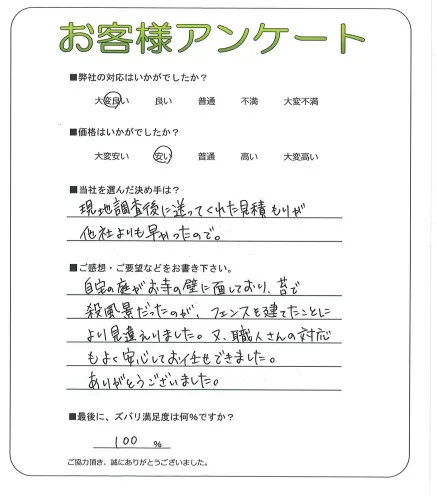 お客様アンケート
■弊社の対応はいかがでしたか？
大変良い 良い 普通 不満 大変不満
■価格はいかがでしたか？
大変安い 安い 普通 高い 大変高い
■当社を選んだ決め手は？
現地調査後に送ってくれた見積もりが
他社よりも早かったので。
■ご感想・ご要望などをお書き下さい。
自宅の庭がお寺の壁に面しており、苔で
殺風景だったのが、フェンスを建てたことに
より見違えりました。又、職人さんの対応
もよく安心してお任せできました。
ありがとうございました。
■最後に、ズバリ満足度は何％ですか？
100 %
ご協力頂き、誠にありがとうございました。